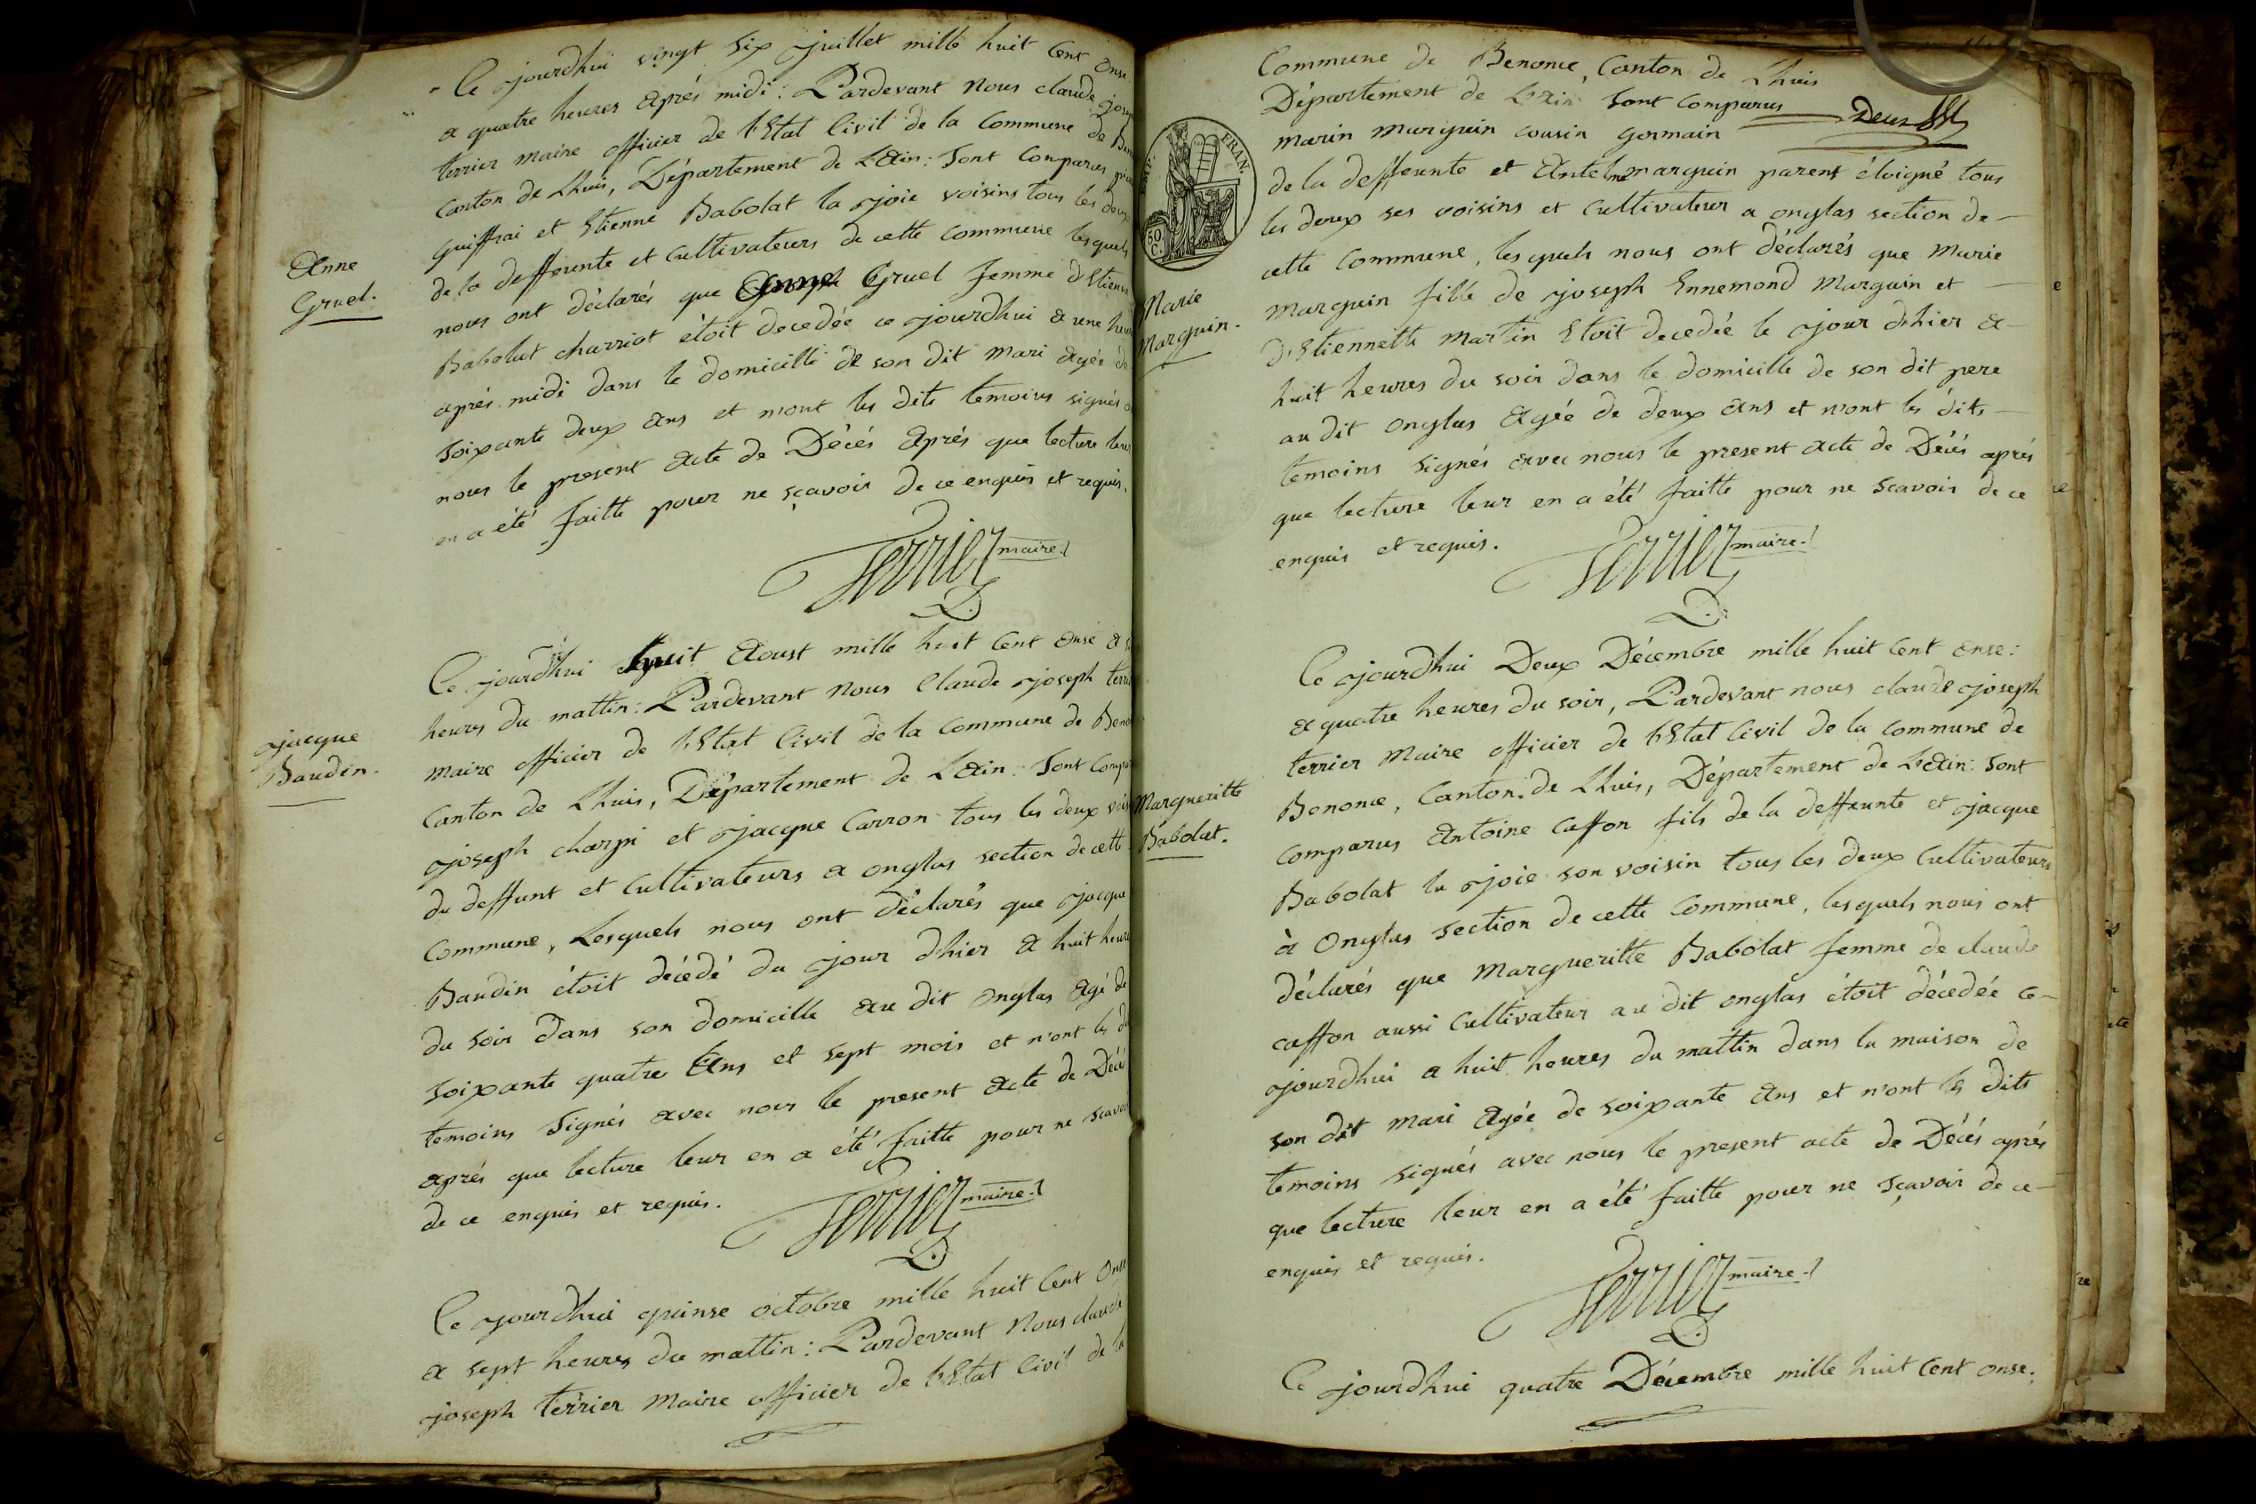 Ce jourdhui vingt six juillet mille huit cent onse
a quatre heures après midi : Pardevant Nous claude josep
terrier maire officier de l'Etat Civil de la Commune de Ben
Canton de Lhuis, Département de L'ain : Sont Comparus
guiffrai et Etienne Babolat la joie voisins tous les deux
de la deffeunte et cultivateurs de cette commune lesquels
nous ont déclarés que Anne Gruel femme d'Etienne
Babolat charriot étoit decedée ce jourdhui a une heu
après midi dans le domicille de son dit mari agée de
Soixante deux ans et n'ont les dits temoins signés a
nous le present acte de Décés après que lecture leur
en a été faitte pour ne sçavoir de ce enquis et requis.
Anne
Gruel.
Terrier maire
Ce jourdhui huit aoust mille huit cent onse a
heures du mattin : Pardevant nous Claude joseph terri
maire officier de l'Etat Civil de la commune de Beno
Canton de Lhuis, Département de L'ain : Sont Compa
joseph charpi et jacque Carron tous les deux voi
du deffunt et cultivateurs a onglas section de cette
Commune, Lesquels nous ont déclarés que jacque
Baudin étoit décédé du jour d'hier a huit heure
du soir dans son domicille au dit onglas agé de
soixante quatre ans et sept mois et n'ont les d
temoins signés avec nous le present acte de Décé
après que lecture leur en a été faitte pour ne scavoi
de ce enquis et requis.
jacque
Baudin.
Terrier maire
Ce jourdhui quinse octobre mille huit cent onse
a sept heures du mattin : Pardevant Nous claude
joseph terrier maire officier de l'Etat Civil de la
Commune de Benonce, Canton de Lhuis
Département de L'ain Sont Comparus
marin marguin cousin germain
de la deffeunte et Antelme marguin parent éloigné tous
les deux ses voisins et cultivateur a onglas section de
cette commune, lesquels nous ont déclarés que marie
marguin fille de joseph Ennemond Marguin et
d'Etiennette martin Etoit decedée le jour d'hier a
huit heures du soir dans le domicille de son dit pere
au dit onglas agée de deux ans et n'ont les dits
temoins signés avec nous le present acte de Décés après
que lecture leur en a été faitte pour ne scavoir de ce
enquis et requis.
EMP. FRAN.
50 C.
Marie
Marguin.
Terrier maire
Ce jourdhui Deux Décembre mille huit cent onse :
a quatre heures du soir, Pardevant nous claude joseph
terrier Maire officier de l'Etat Civil de la commune de
Benonce, Canton de Lhuis, Département de L'ain : Sont
Comparus Antoine Caffon fils de la deffeunte et jacque
Babolat la joie son voisin tous les deux Cultivateurs
à Onglas section de cette Commune, lesquels nous ont
déclarés que Margueritte Babolat femme de claude
caffon aussi Cultivateur au dit onglas étoit décedée ce
jourdhui a huit heures du mattin dans la maison de
son dit mari agée de soixante ans et n'ont les dits
temoins signés avec nous le present acte de Décés après
que lecture leur en a été faitte pour ne sçavoir de ce
enquis et requis.
Margueritte
Babolat.
Terrier maire
Ce jourdhui quatre Décembre mille huit cent onse.